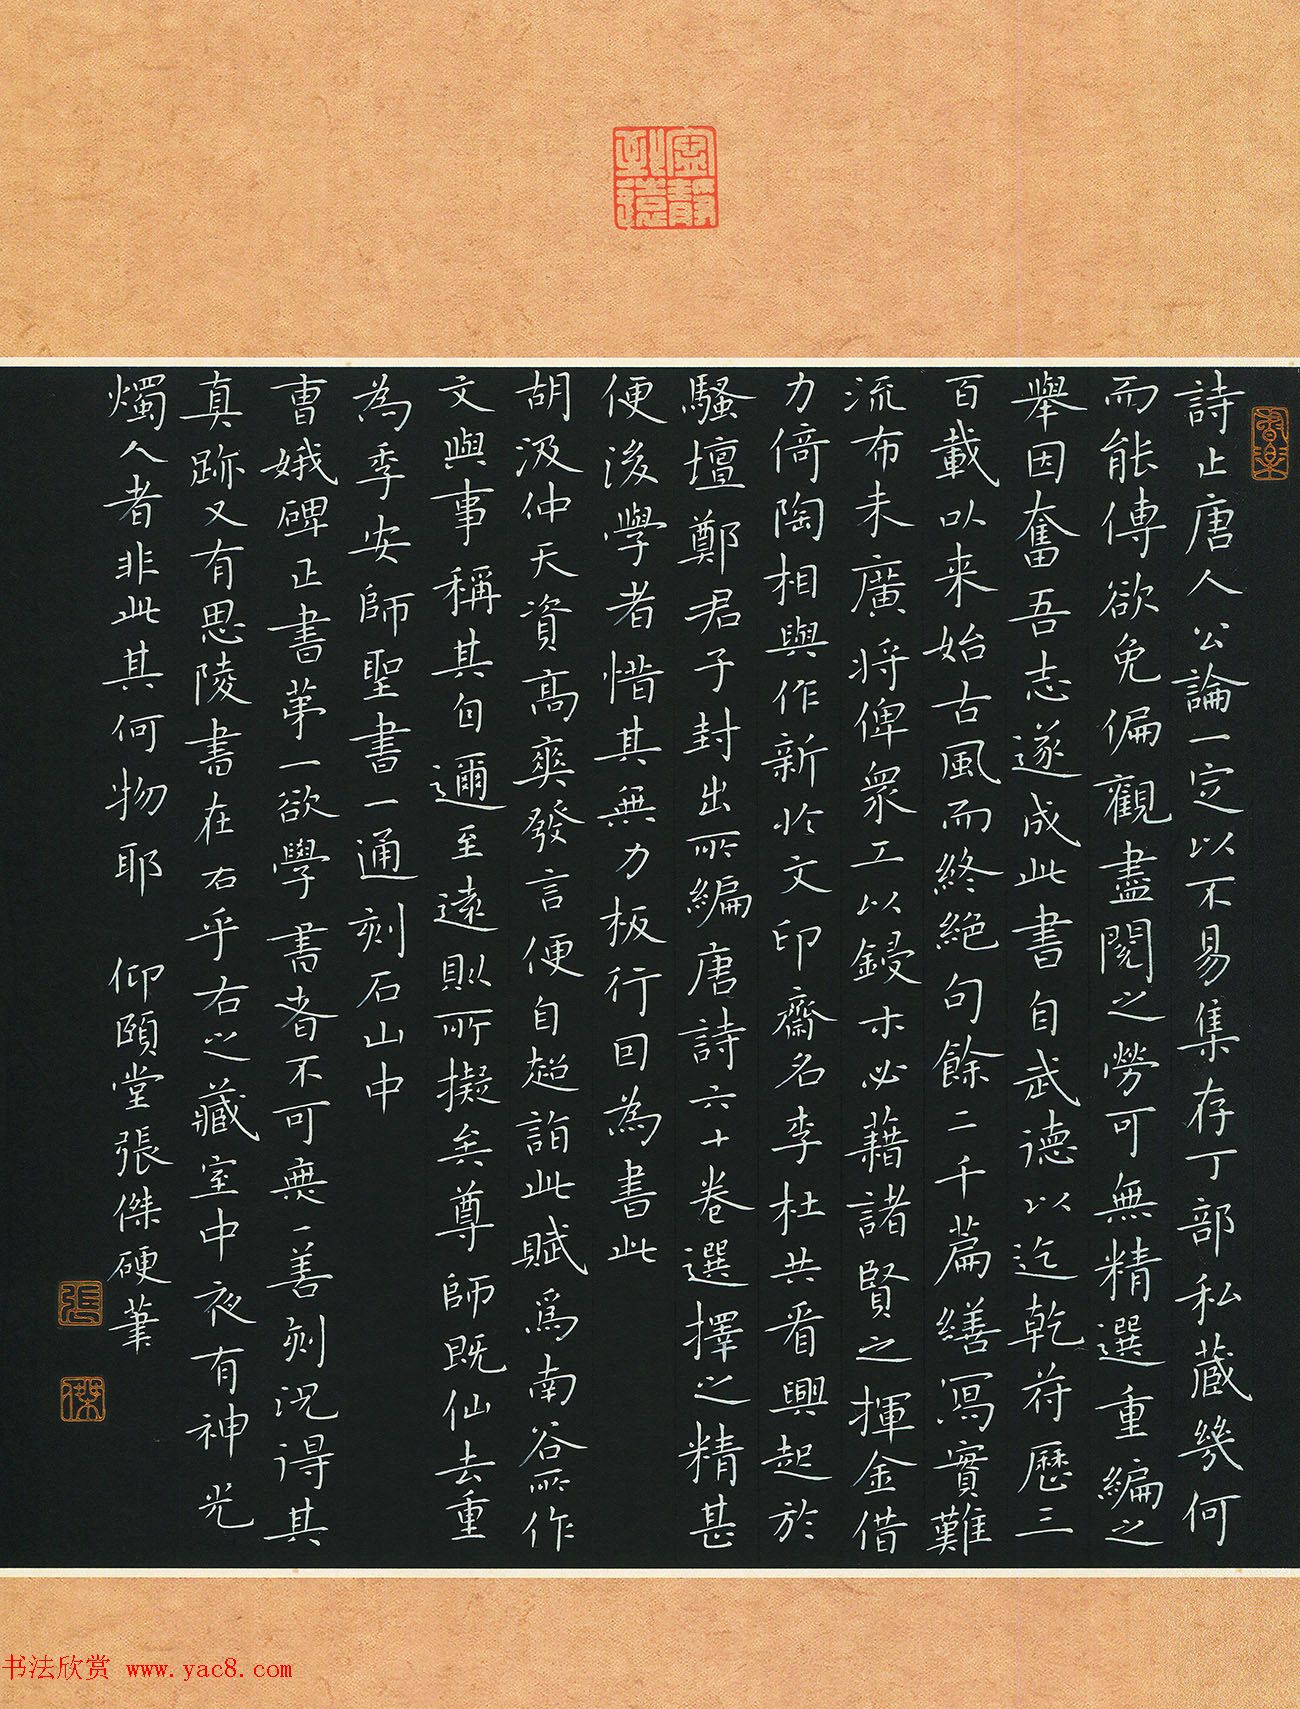 寧靜致遠
詩止唐人公論一定以不易集存丁部私藏幾何
而能傳欲免偏觀盡閱之勞可無精選重編之
舉因奮吾志遂成此書自武德以迄乾符歷三
百載以来始古風而終絕句餘二千篇繕寫實難
流布未廣将俾衆工以鋟木必藉諸賢之揮金借
力倚陶相與作新於文印齋名李杜共看興起於
騷壇鄭君子封出所編唐詩六十卷選擇之精甚
便後學者惜其無力板行回為書此
胡汲仲天資高爽發言便自超詣此賦為南谷所作
文與事稱其自邇至遠則所擬矣尊師既仙去重
為季安師聖書一通刻石山中
曹娥碑正書第一欲學書者不可無一善刻况得其
真跡又有思陵書在右乎右之藏室中夜有神光
燭人者非此其何物耶 仰頤堂張傑硬筆
張
傑
书法欣赏 www.yac8.com